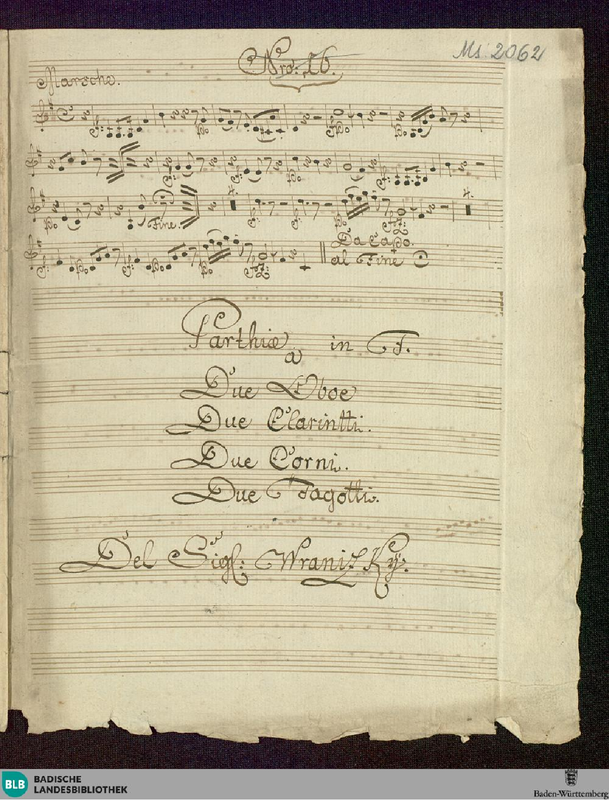 Ms 2062
Nro: 16.
Marsche.
Fine.
4.
4.
Da Capo
al Fine
Parthia in F.
a
Due Oboe
Due Clarinetti.
Due Corni.
Due Fagotti.
Del Sigl: Wranizky.
BLB BADISCHE
LANDESBIBLIOTHEK
Baden-Württemberg